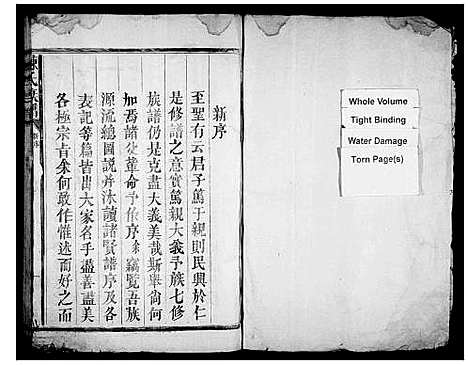 新序
至聖有云君子篤于親則民興於仁
是修譜之意實篤親大義予族七修
族譜仍是克盡大義美哉斯舉尚何
加焉諸父輩命予作序余竊覧吾族
源流總圖說并沐讀諸賢譜序及各
表記等篇皆出大家名手盡善盡美
各極宗旨余何敢作惟述而好之而
Whole Volume
Tight Binding
Water Damage
Torn Page(s)